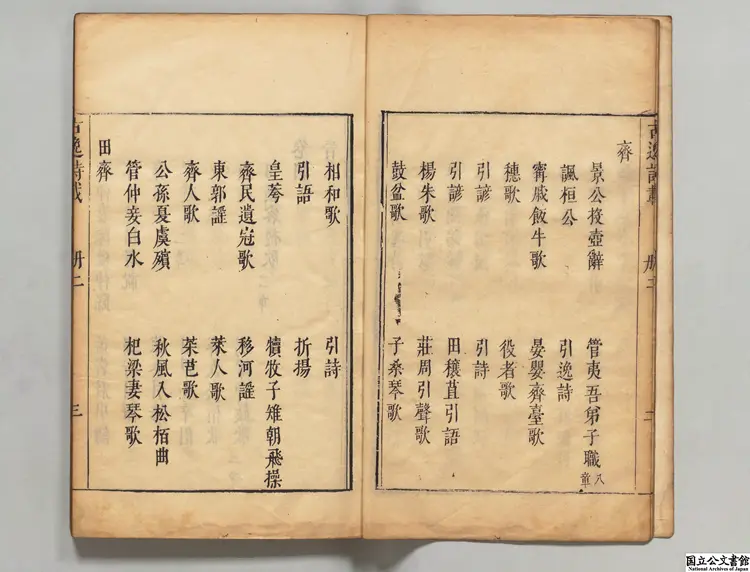 齊
景公投壺辭 管夷吾弟子職 八章
諷桓公 引逸詩
甯戚飯牛歌 晏嬰齊臺歌
穗歌 役者歌
引諺 引詩
引諺 田穰苴引語
楊朱歌 莊周引聲歌
鼓盆歌 子桑琴歌
相和歌 引詩
引語 折揚
皇荂 犢牧子雉朝飛操
齊民遺冠歌 移河謡
東郭謡 萊人歌
齊人歌 菜芑歌
公孫夏虞殯 秋風入松栢曲
管仲妾白水 杞梁妻琴歌
田齊
古逸詩載 册二 三
国立公文書館
National Archives of Japan